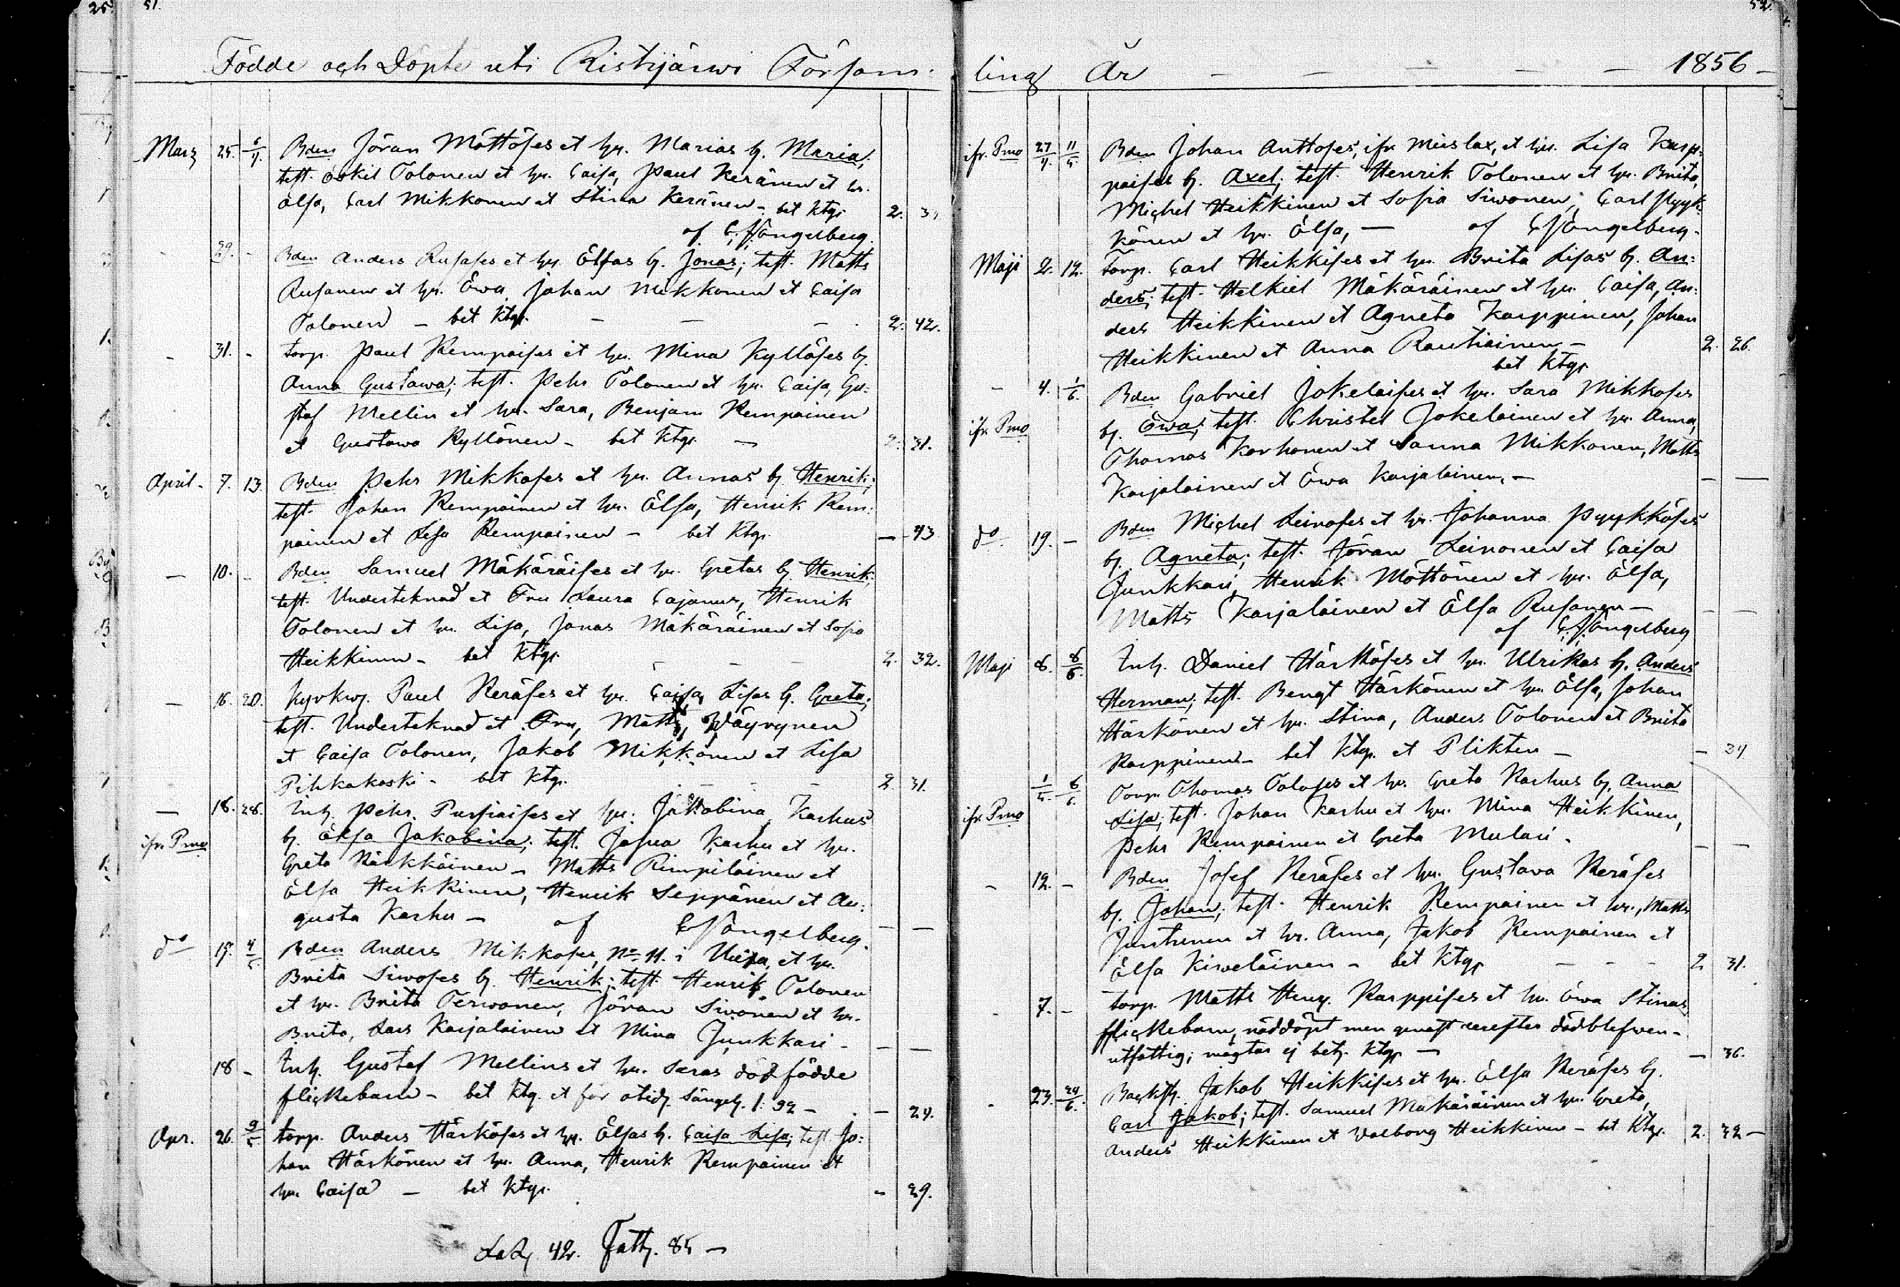 25. 51.
Födde och Döpte uti Ristijärwi Försam-
Mars 25. 6/4 Bden Jöran Möttöses et hu. Marias b. Maria;
test. Eskil Tolonen et hu. Caisa, Paul Keränen et hu.
Elsa, Carl Mikkonen et Stina Keränen - bet Ktgr 2.
af C. J. Engelberg
29. - Bden Anders Rusases et hu. Elsas b. Jonas; test. Matts
Rusanen et hu. Ewa, Johan Mikkonen et Caisa
Tolonen - bet Ktgr. - - - 2. 42.
- 31. - Torp. Paul Rempaises et hu. Mina Kyllöses b.
Anna Gustawa; test. Pehr Tolonen et hu. Caisa, Gu-
staf Mellin et hu. Sara, Benjam Rempainen
et Gustawa Kyllönen - bet Ktgr. - 2. 31.
April - 7. 13. Bden Pehr Mikkoses et hu. Annas b. Henrik;
test. Johan Rempainen et hu. Elsa, Henrik Rem-
painen et Lisa Rempainen - bet Ktgr. - 43
- 10. - Bden Samuel Mäkäräises et hu. Gretas b. Henrik;
test. Underteknad et Fru Laura Cajanus, Henrik
Tolonen et hu. Lisa, Jonas Mäkäräinen et Sofia
Heikkinen - bet Ktgr - - - 2. 32.
- 16. 20. Kyrkwj. Paul Keräses et hu. Caisa Lisas b. Greta;
test. Underteknad et Fru, Matts Wäyrynen
et Caisa Tolonen, Jakob Mikkonen et Lisa
Pihkakoski - bet Ktgr. 2. 31.
- 18. 28. Inh. Pehr Pursiaises et hu. Jakobina Karhus
ifr. Pmo b. Elsa Jakobina; test. Josua Karhu et hu.
Greta Kärkkäinen - Matts Rimpiläinen et
Elsa Heikkinen, Henrik Seppänen et Au-
gusta Karhu - af C J Engelberg. - -
do 15. 4/5 Bden Anders Mikkoses, No 11. i et hu.
Brita Siwoses b. Henrik; test. Henrik Tolonen
et hu. Brita Terwonen, Jöran Siwonen et hu.
Brita, Lars Karjalainen et Mina Junkkari - - -
18 - Inh. Gustaf Mellins et hu. Saras dödfödde
flickebarn - bet Ktg. et för otid. Sängel. 1: 92 - - 24.
Apr. 26. 9/5 Torp. Anders Härköses et hu. Elsas b. Caisa Lisa; test. Jo-
han Härkönen et hu. Anna, Henrik Rempainen et
hu. Caisa - bet Ktgr. - 29.
42. Fatt. 85 -
52.
ling År - - - - - 1856 -
ifr. Pmo 27/4. 11/5. Bden Johan Anttoses, ifr. Mieslax, et hu. Lisa Karp-
paises b. Axel; test. Henrik Tolonen et hu. Brita,
Michel Heikkinen et Sofia Siwonen, Carl Pyyk-
könen et hu. Elsa, - af C J Engelberg.
Maji 2. 12. Torp. Carl Heikkises et hu. Brita Lisas b. An-
ders; test. Helkiel Mäkäräinen et hu. Caisa, An-
ders Heikkinen et Agneta Karppinen, Johan
Heikkinen et Anna Rautiainen - 2. 26.
bet Ktgr
- 4. 1/6. Bden Gabriel Jokelaises et hu. Sara Mikkoses
ifr. Pmo b. Ewa; test. Christel Jokelainen et hu. Anna,
Thomas Korhonen et Sanna Mikkonen, Matts
Karjalainen et Ewa Karjalainen. - - -
do 19. - Bden Michel Leinoses et hu. Johanna Pyykköses
b. Agneta; test. Jöran Leinonen et Caisa
Junkkari, Henrik Möttönen et hu. Elsa,
Matts Karjalainen et Elsa Rusanen - - -
af C. J. Engelberg
Maji 6. 8/6. Inh. Daniel Härköses et hu. Ulrikas b. Anders
Herman; test. Bengt Härkönen et hu. Elsa, Johan
Härkönen et hu. Stina, Anders Tolonen et Brita
Karppinen - bet Ktgr. et Plikten - - 34
1/5. 8/6. Torp. Thomas Toloses et hu. Greta Karhus b. Anna
ifr. Pmo Lisa; test. Johan Karhu et hu. Mina Heikkinen,
Pehr Rempainen et Greta Mulari - - -
- 12. - Bden Josef Keräses et hu. Gustava Keräses
b. Johan; test. Henrik Rempainen et hu., Matts
Juntunen et hu. Anna, Jakob Rempainen et
Elsa Kiweläinen - bet Ktgr - - - 2. 31.
7. - Torp. Matts Henr. Karppises et hu. Ewa Stinas
flickebarn, nöddöpt men genast derefter dödblefwen -
utfattig; mägtar ej bet. Ktgr - - 36.
23. 24/6. Backst. Jakob Heikkises et hu. Elsa Keräses b.
Carl Jakob; test. Samuel Mäkäräinen et hu. Greta,
Anders Heikkinen et Walborg Heikkinen - bet Ktgr. 2. 32 -